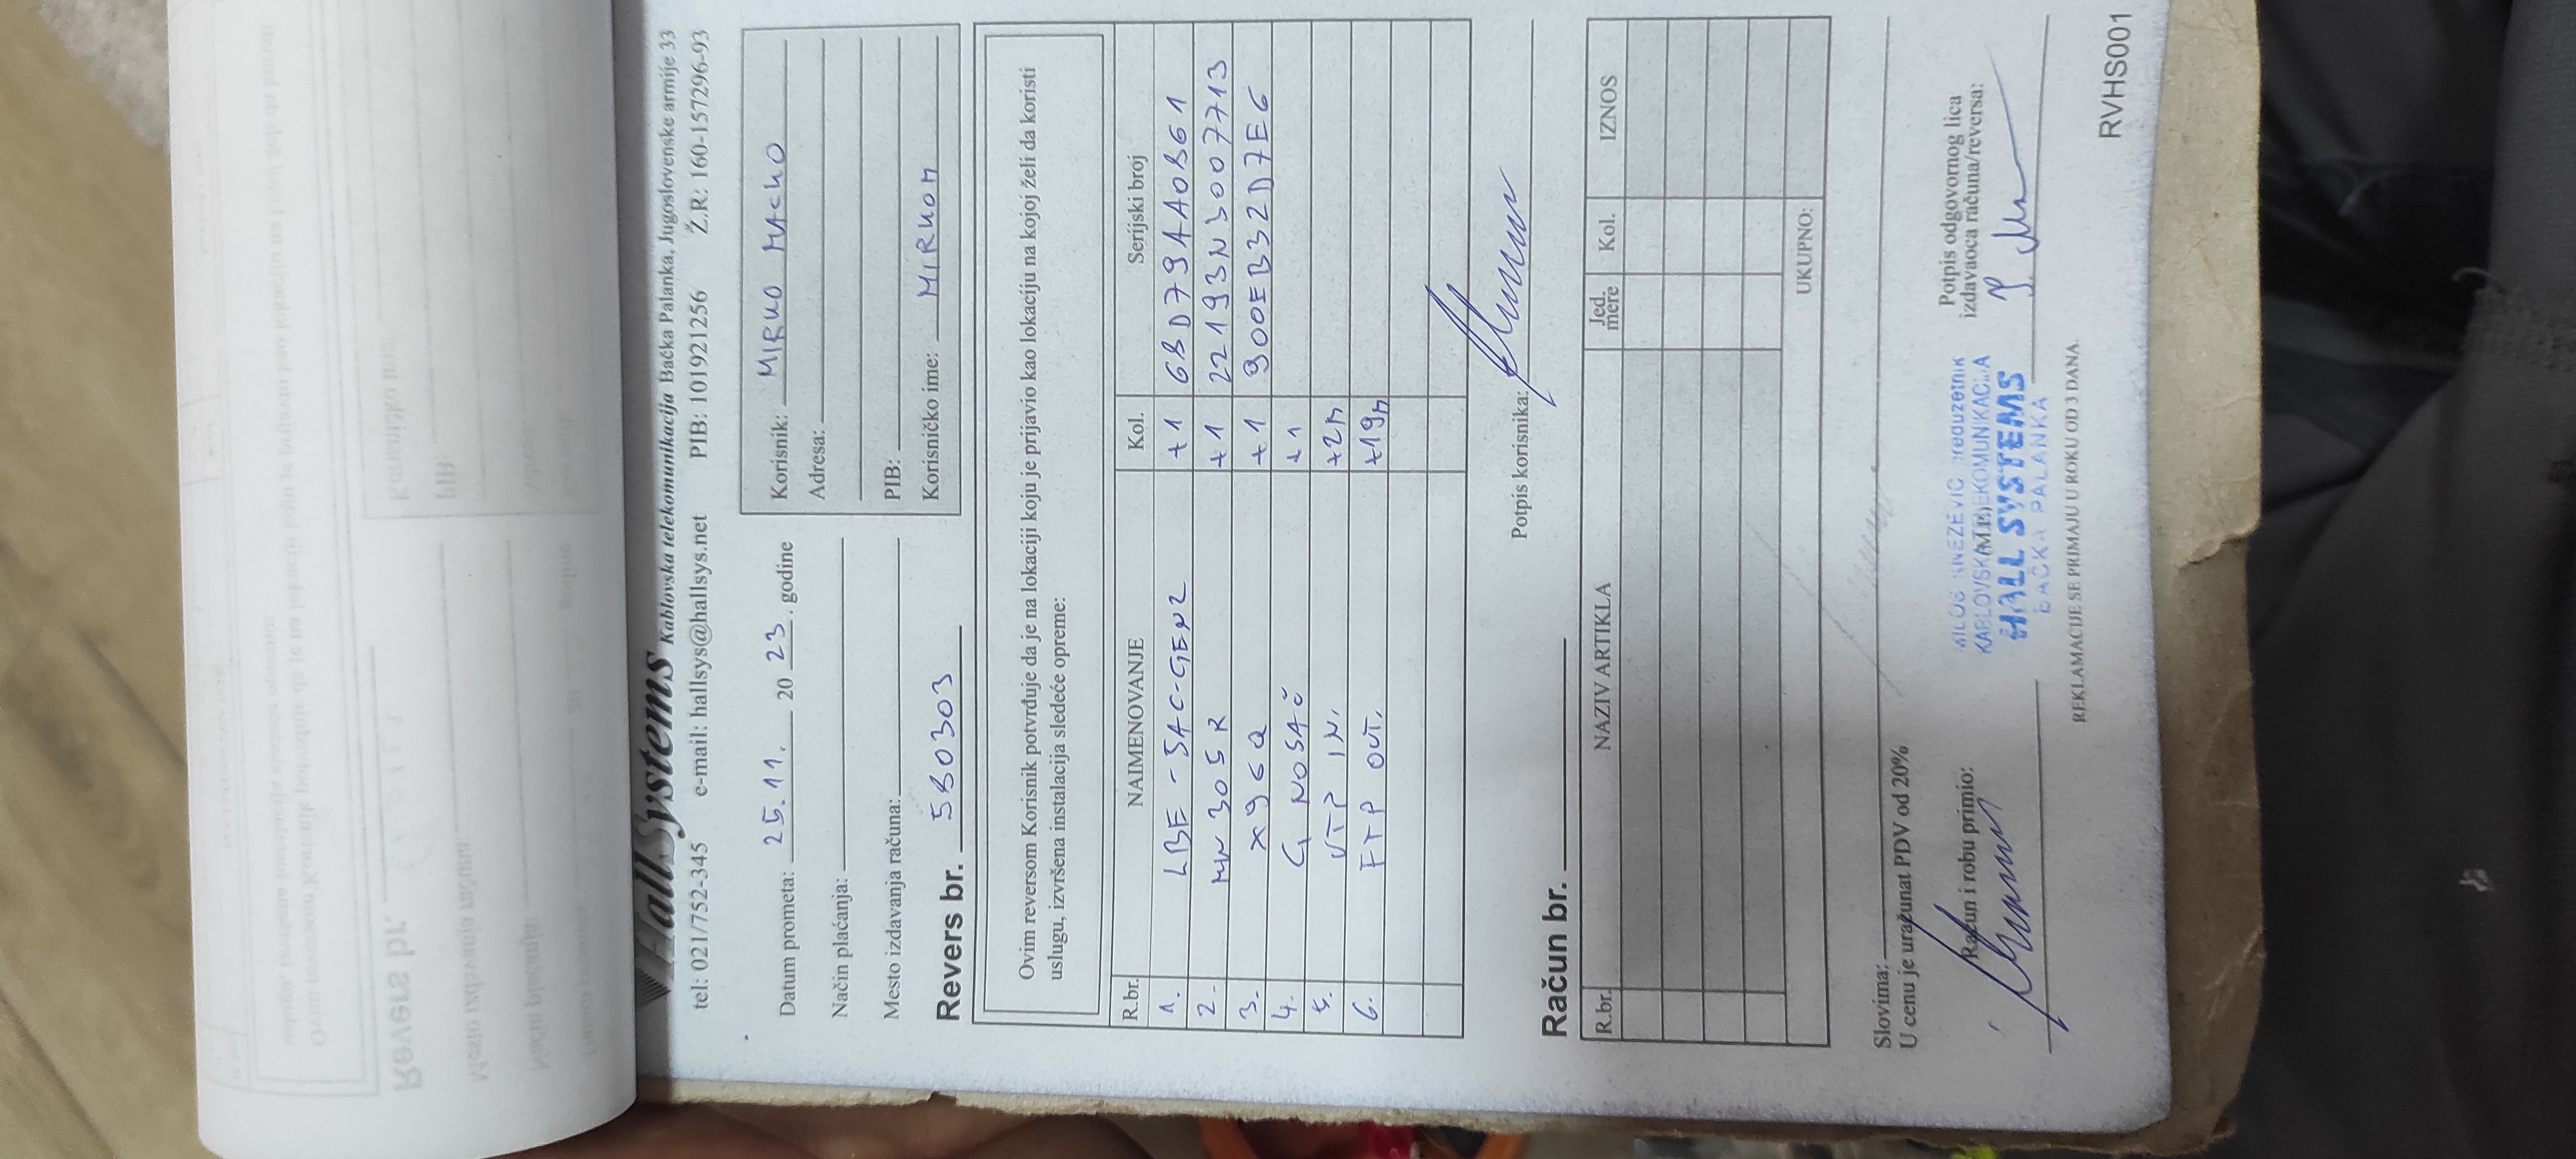 HallSystems Kablovska telekomunikacija Bačka Palanka, Jugoslovenske armije 33
tel: 021/752-345 e-mail: hallsys@hallsys.net PIB: 101921256 Ž.R: 160-157296-93
Datum prometa: 25.11. 20 23. godine
Način plaćanja:
Mesto izdavanja računa:
Korisnik: MIRKO MACKO
Adresa:
PIB:
Korisničko ime: MIRKOM
Revers br. 580303
Ovim reversom Korisnik potvrđuje da je na lokaciji koju je prijavio kao lokaciju na kojoj želi da koristi
uslugu, izvršena instalacija sledeće opreme:
R.br. NAIMENOVANJE Kol. Serijski broj
1. LBE-5AC-GEN2 +1 68D79AA0861
2. MW305R +1 22193N3007713
3. X96Q +1 900EB32D7E6
4. G NOSAČ +1
5. UTP IN. +2m
6. FTP OUT. +19m
Potpis korisnika:
Račun br.
R.br. NAZIV ARTIKLA Jed. mere Kol. IZNOS
UKUPNO:
Slovima:
U cenu je uračunat PDV od 20%
Račun i robu primio:
(M.P.)
MILOŠ KNEZEVIĆ preduzetnik
KABLOVSKA TELEKOMUNIKACIJA
HALL SYSTEMS
BAČKA PALANKA
Potpis odgovornog lica
izdavaoca računa/reversa:
REKLAMACIJE SE PRIMAJU U ROKU OD 3 DANA.
RVHS001